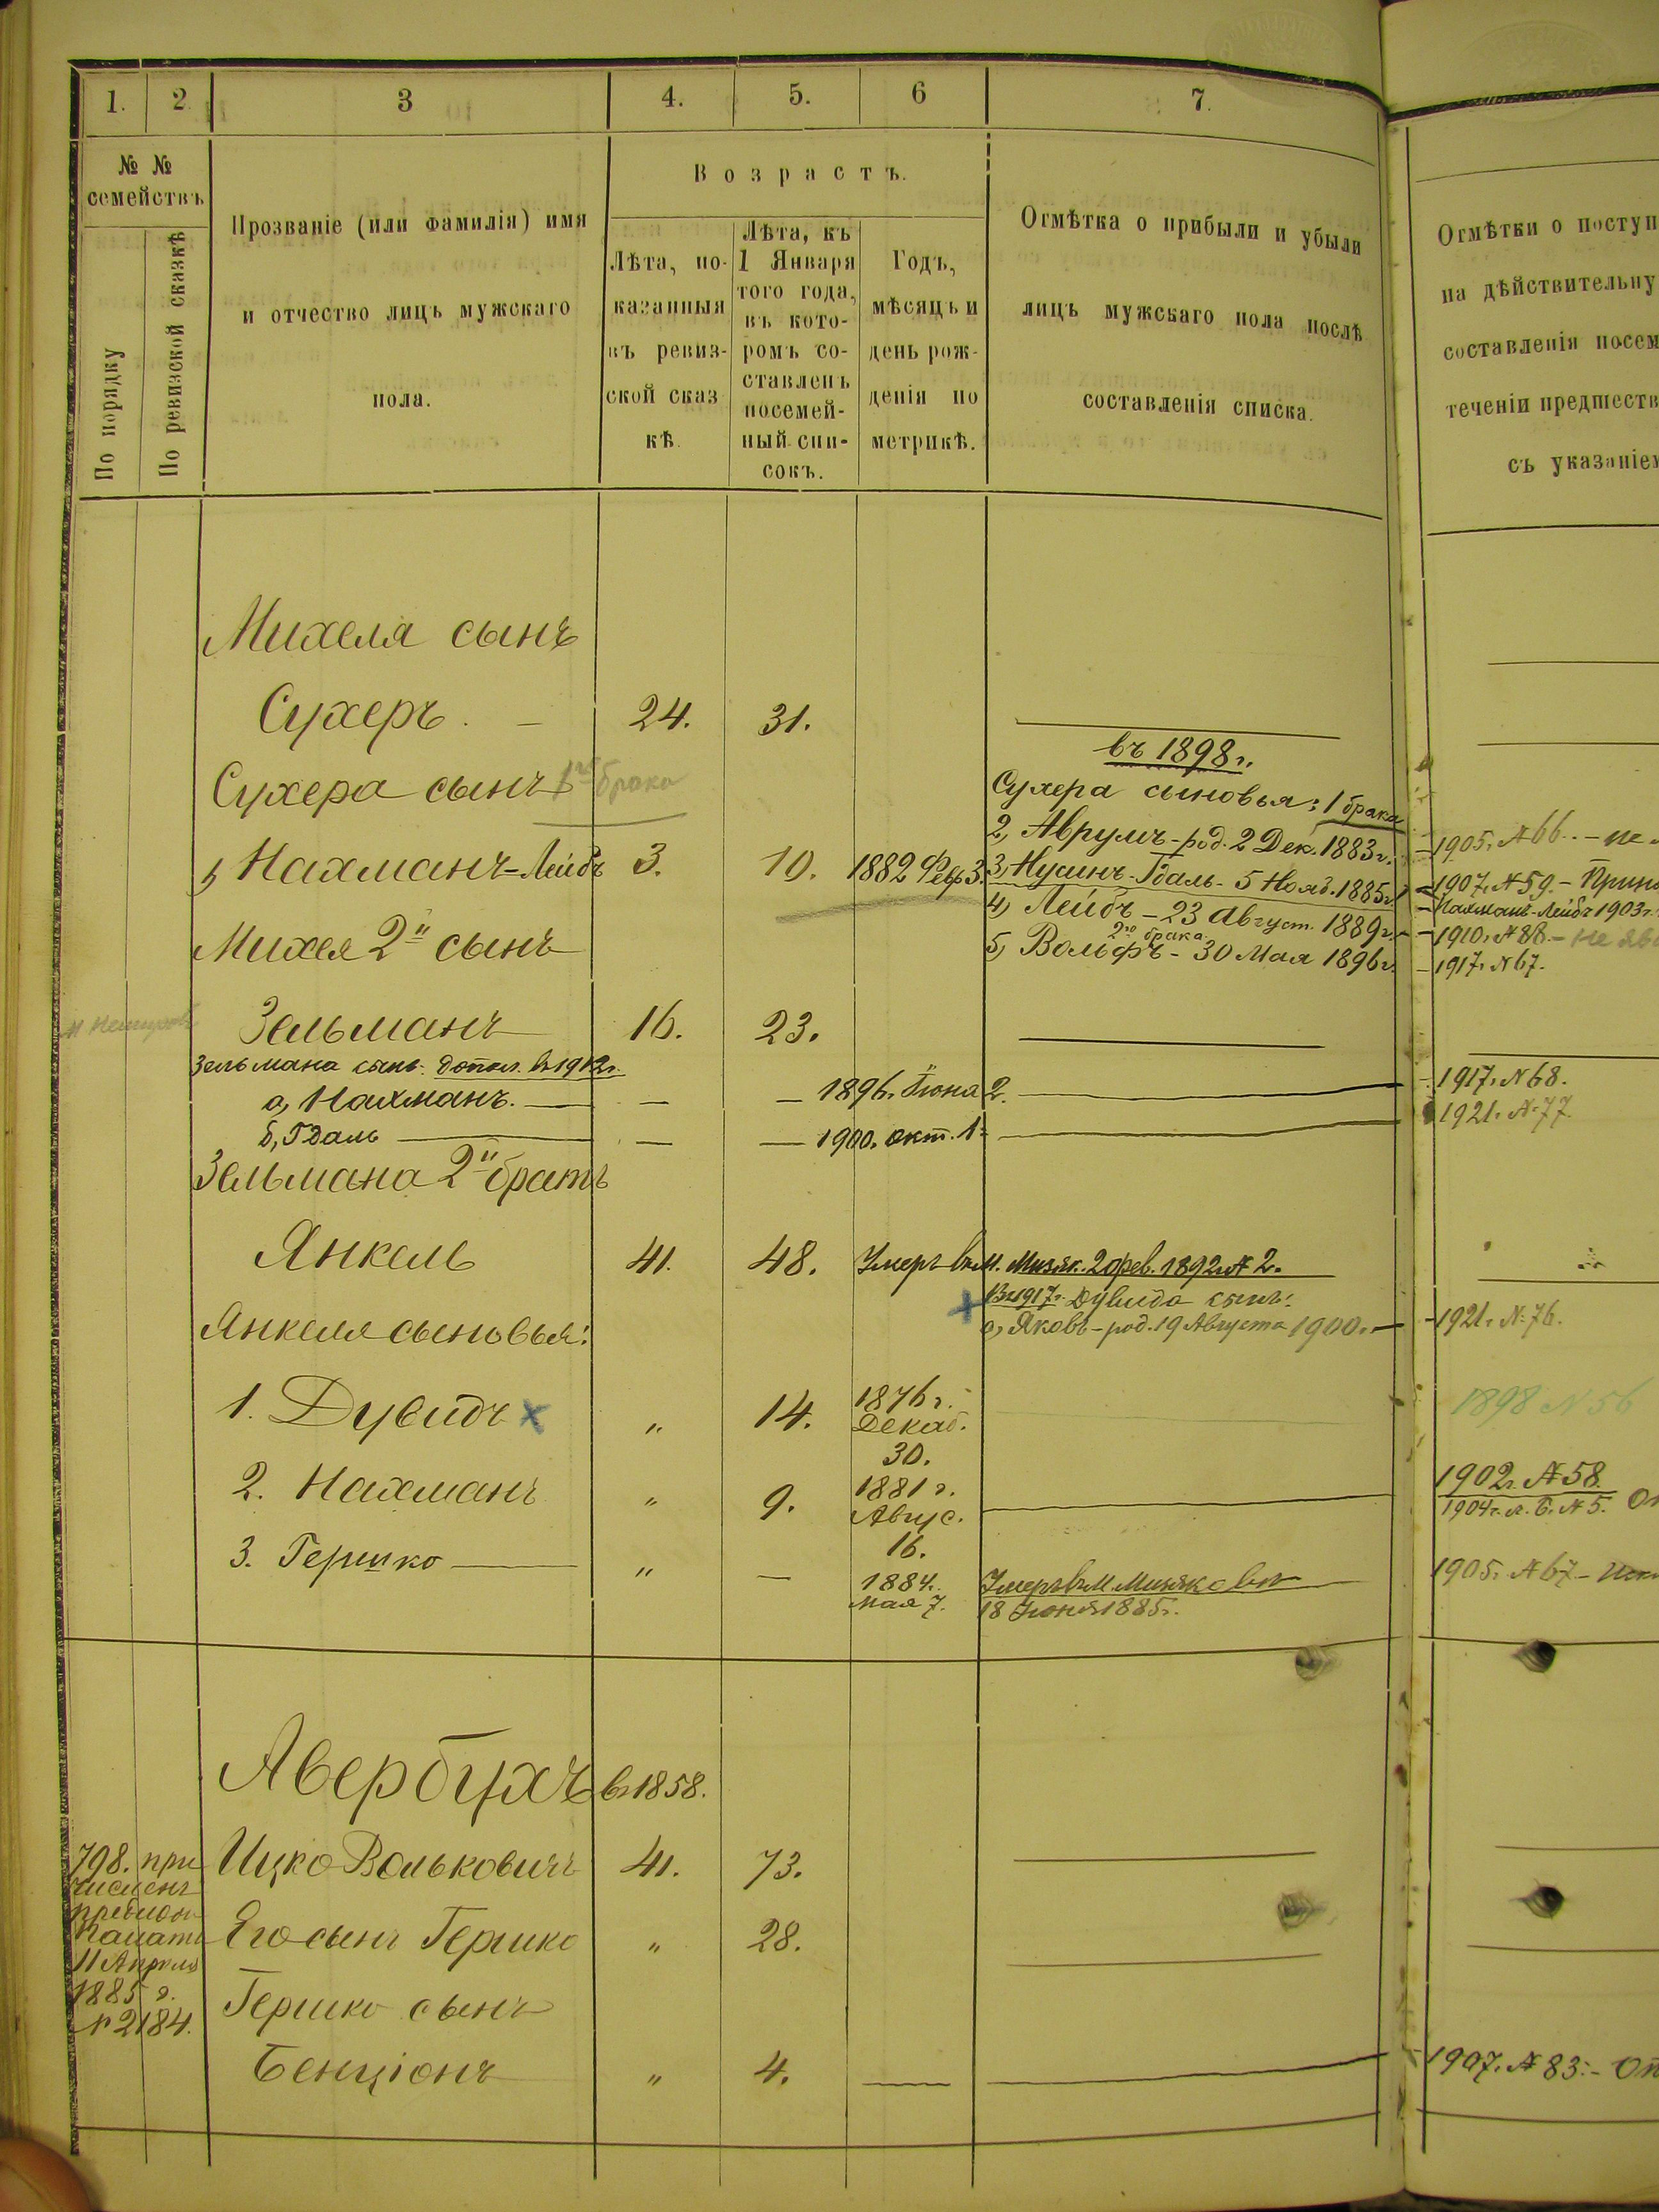 1. 2. 3 4. 5. 6 7.
№ №
семействъ
По порядку
По ревизской сказкѣ
Прозваніе (или фамилія) имя
и отчество лицъ мужскаго
пола.
Возрастъ.
Лѣта, по-
казанныя
въ ревиз-
ской сказ
кѣ.
Лѣта, къ
1 Января
того года,
въ кото-
ромъ со-
ставленъ
посемей-
ный спи-
сокъ.
Годъ,
мѣсяцъ и
день рож-
денія по
метрикѣ.
Отмѣтка о прибыли и убыли
лицъ мужскаго пола послѣ
составленія списка.
Отмѣтки о поступ
на дѣйствительну
составленія посем
теченіи предшеств
съ указаніем
Михеля сынъ
Сухеръ. — 24. 31.
въ 1898 г.
Сухера сынъ 1го брака
Сухера сыновья: 1 брака
2, Аврумъ - род. 2 Дек. 1883 г. - 1905. № 66. - не
1, Нахманъ-Лейбъ 3. 10. 1882 Фев 3.
3, Нусинъ-Гдаль - 5 Нояб. 1885 г. 1907. № 59. -
Нахманъ-Лейбъ 1903 г.
4, Лейбъ - 23 Август. 1889 г. - 1910. № 88. - не яв
2го брака
5, Вольфъ - 30 Мая 1896 г. - 1917. № 67.
Михеля 2й сынъ
Зельманъ 16. 23.
Зельмана сынъ: допол. въ 1912 г.
а, Нахманъ. — — — 1896. Іюня 2. - 1917. № 68.
б, Гдаль — — — 1900. окт. 1. 1921. № 77.
Зельмана 2й братъ
Янкель 41. 48. Умеръ въ м. Мизяк. 20 фев. 1892 г. № 2.
Въ 1917 г. Дувида сынъ:
Янкеля сыновья:
а, Яковъ - род. 19 Августа 1900 г. - 1921. № 76.
1. Дувидъ x „ 14. 1876 г.
Декаб.
30.
1898 № 56
2. Нахманъ „ 9. 1881 г.
Авгус.
16.
1902 г. № 58.
1904 г. л. б. № 5.
3. Гершко — „ — 1884.
Мая 7.
Умеръ въ м. Мизяковѣ
18 Іюня 1885 г.
1905. № 67 -
Авербухъ въ 1858.
798. при
численъ
Палаты
11 Апреля
1885 г.
№ 2184.
Ицко Волькович 41. 73.
Его сынъ Гершко „ 28.
Гершко сынъ
Бенціонъ „ 4. — — 1907. № 83. -